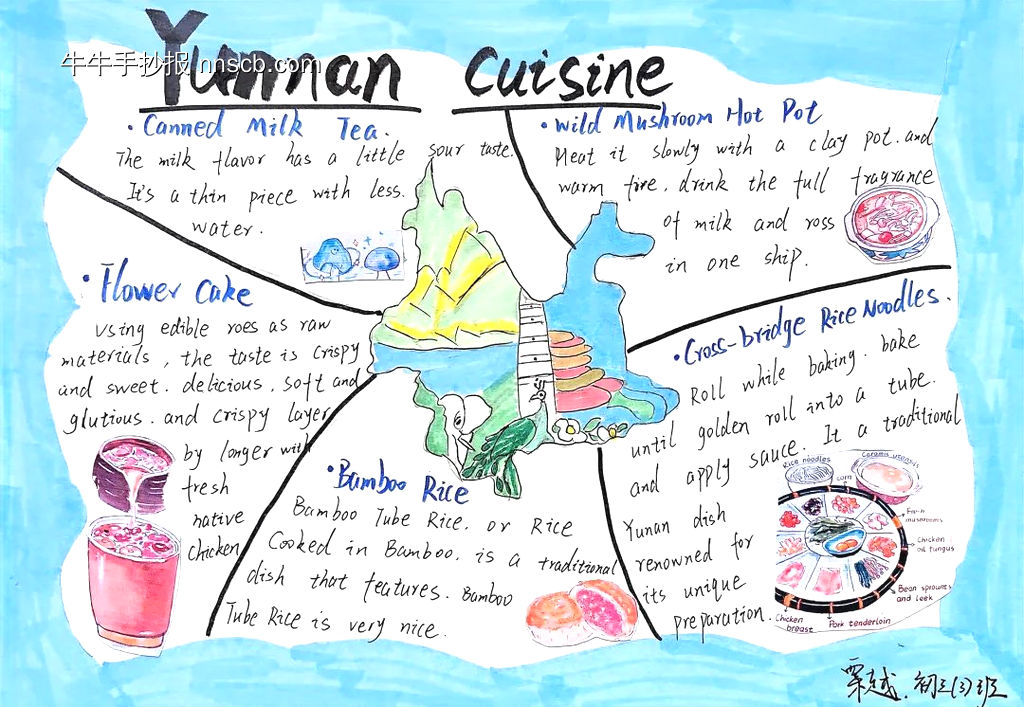 牛牛手抄报 nnscb.com
Yunnan Cuisine
· Canned Milk Tea.
The milk flavor has a little sour taste.
It's a thin piece with less.
water.
· Wild Mushroom Hot Pot
Meat it slowly with a clay pot. and
warm fire. drink the full fragrance
of milk and ross
in one ship.
· Flower Cake
Using edible roes as raw
materials, the taste is crispy
and sweet. delicious. soft and
glutious. and crispy layer
by longer with
fresh
native
chicken
· Bamboo Rice
Bamboo Tube Rice. or Rice
Cooked in Bamboo. is a traditional
dish that features. Bamboo
Tube Rice is very nice.
· Cross-bridge Rice Noodles.
Roll while baking. bake
until golden roll into a tube.
and apply sauce. It a traditional
Yunan dish
renowned for
its unique
preparation.
Rice noodles
Ceramic utensils
corn
mushrooms
Chicken
oil fungus
Bean sprouts
and leek
Pork tenderloin
Chicken
breast
覃越. 初三(3)班